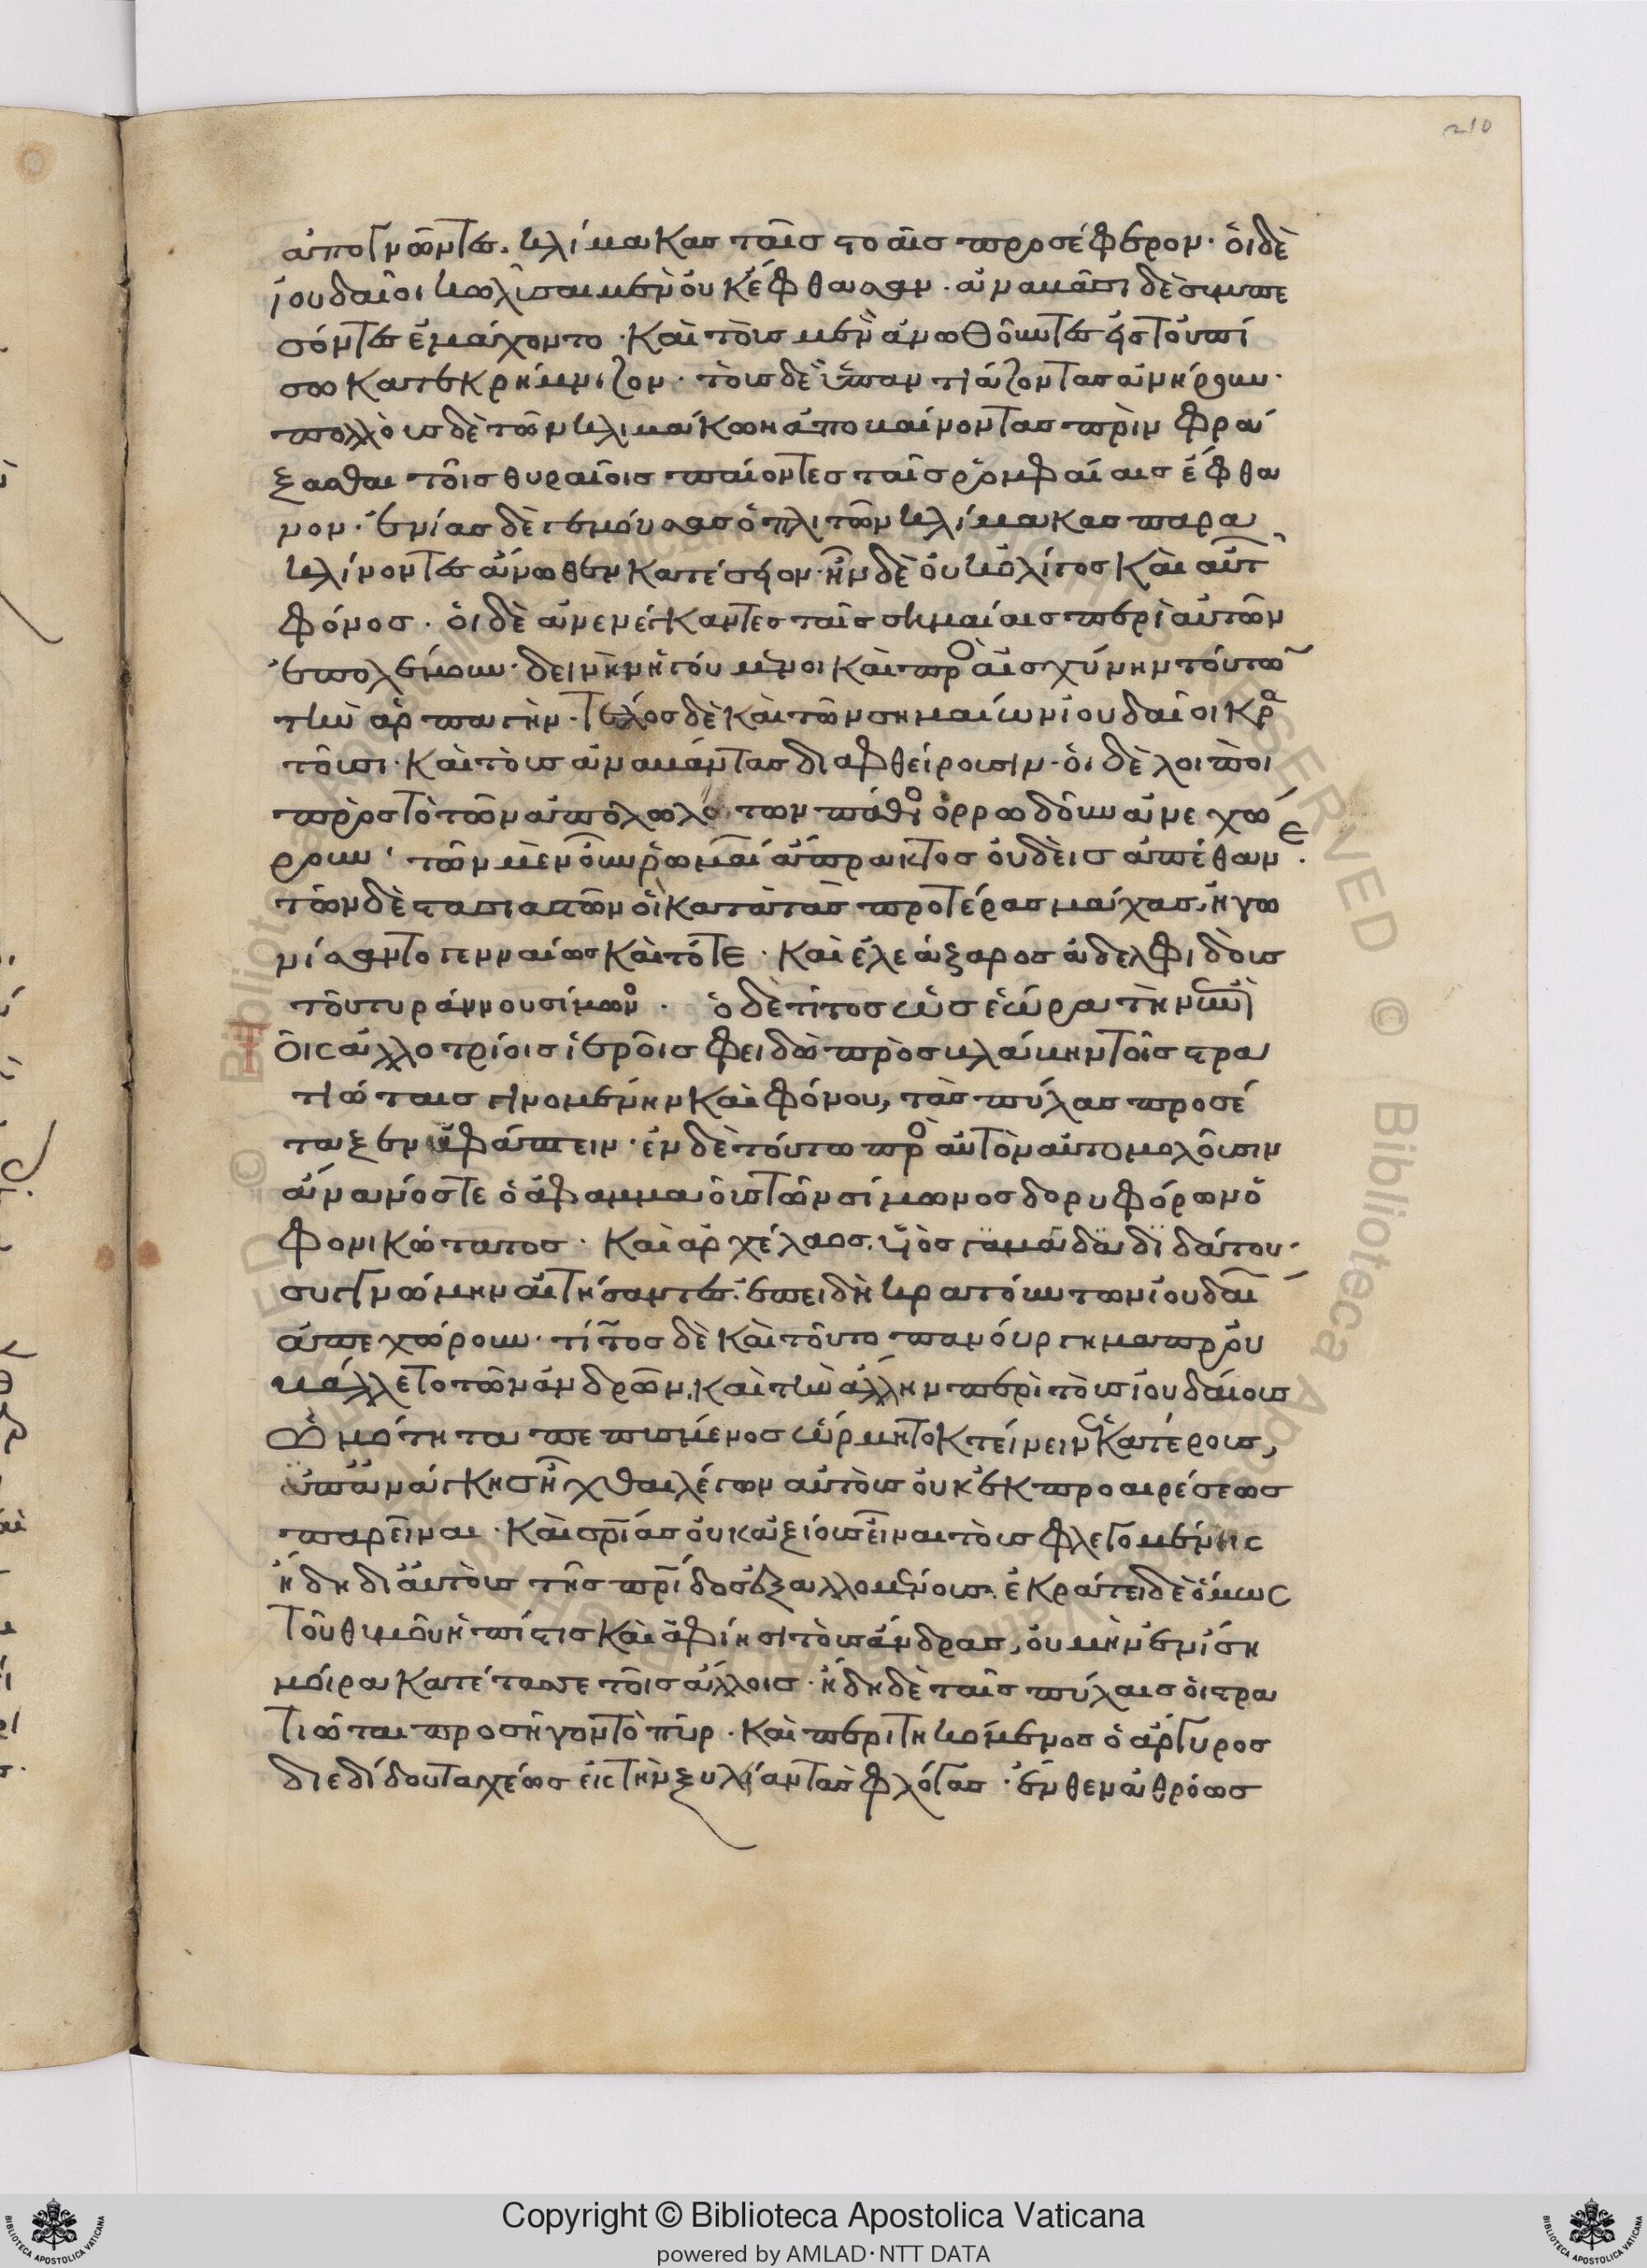 210
ἀπογνῶντες. κλίμακας ταῖς στοαῖς προσέφερον· οἱ δὲ
ἰουδαῖοι κωλῦσαι μὲν οὐκ ἔφθασαν. ἀναμᾶσι δὲ συμπε
σόντες ἐμάχοντο· καὶ τοὺς μὲν ἀνωθοῦντες εἰς τοὐπί
σω κατεκρήμνιζον· τοὺς δὲ ὑπαντιάζοντας ἀνήρουν·
πολλοὺς δὲ τῶν κλιμάκων ἀποβαίνοντας πρὶν φρά
ξασθαι τοῖς θυραίοις παίοντες ταῖς ῥομφαίαις ἔφθα
νον· ἐνίας δὲ γεμούσας ὁπλιτῶν κλίμακας παρα
κλίνοντες ἄνωθεν κατέσειον· ἦν δὲ οὐκ ὀλίγος καὶ αὐτ
φόνος. οἱ δὲ ἀνενέγκαντες ταῖς σημαίαις περὶ αὐτῶν
ἐπολέμουν· δεινὴν ἡγούμενοι καὶ πρὸ αἰσχύνην τούτω
τὴν ἁρπαγήν. τέλος δὲ καὶ τῶν σημαίων ἰουδαῖοι κρα
τοῦσι. καὶ τοὺς ἀναβάντας διαφθείρουσιν. οἱ δὲ λοιποὶ
πρὸς τὸ τῶν ἀπολωλότων πάθος ὀρρωδοῦν ἀνεχώ
ρουν· τῶν μὲν οὖν ῥωμαί ἄπρακτος οὐδεὶς ἀπέθανε.
τῶν δὲ στασιαστῶν οἳ κατὰ τὰς προτέρας μάχας, ἠγω
νίσαντο γενναίως καὶ τότε. καὶ ἐλεάξαρος ἀδελφιδοῦς
τοῦ τυράννου σίμων. ὁ δὲ τίτος ὡς ἑώρα τὴν ἐπὶ
τοῖς ἀλλοτρίοις ἱεροῖς φειδὼ πρὸς βλάβην τοῖς στρα
τιώταις γινομένην καὶ φόνου, τὰς πύλας προσέ
ταξεν ὑφάπτειν· ἐν δὲ τούτω πρὸ αὐτὸν αὐτομολοῦσιν
ἄνανός τε ὁ ἀφ αμμαοῦς τῶν σίμωνος δορυφόρων ὁ
φονικώτατος. καὶ ἀρχέλαος. υἱὸς γαμαδδαδι δάτου·
συγγνώμην αἰτήσαντες. ἐπειδὴ κρατούντων ἰουδαί
ἀπεχώρουν· τίτος δὲ καὶ τοῦτο πανούργημα προὐ
βάλλετο τῶν ἀνδρῶν, καὶ τὴν ἄλλην περὶ τοὺς ἰουδαίους
ὠμότητα πεπυσμένος ὥρμητο κτείνειν ἑκατέρους,
ὑπ᾽ ἀνάγκης ἦχθαι λέγων αὐτοὺς οὐκ ἐκ προαιρέσεως
παρεῖναι. καὶ σρίας οὐκ ἀξίους εἶναι τοὺς φλεγομένης
ἤδη δι᾽ αὐτοὺς τῆς πρίδος ἐξαλλομένους. ἐκράτει δὲ ὅμως
τοῦ θυμοῦ ἡ πίστις καὶ ἀφίησι τοὺς ἄνδρας, οὐ μὴν ἐν ἴση
μοίρα κατέτασσε τοῖς ἄλλοις. ἤδη δὲ ταῖς πύλαις οἱ στρα
τιῶται προσῆγον τὸ πῦρ. καὶ περιτηκόμενος ὁ ἄργυρος
διεδίδου ταχέως εἰς τὴν ξυλίαν τὰς φλόγας. ἔνθεν ἀθρόως
Copyright © Biblioteca Apostolica Vaticana
powered by AMLAD·NTT DATA